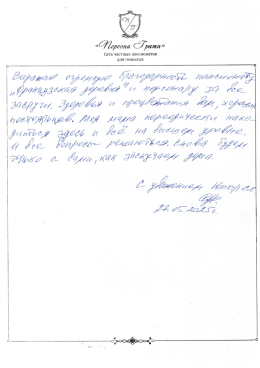 «Персона Грата»
Сеть частных пансионатов
для пожилых
Выражаю огромную благодарность пансионату
"Французская деревня" и персоналу за все
заслуги. Здоровья и процветания вам, хороших
постояльцев. Моя мама периодически нахо-
диться здесь и всё на высшем уровне
и все вопросы решаються. Снова будем
только с вами, как заскучаем дома.
С уважением
22.05.2025г.